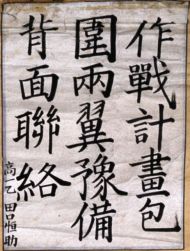 作戰計畫包
圍兩翼豫備
背面聯絡
高乙 田呂恒助